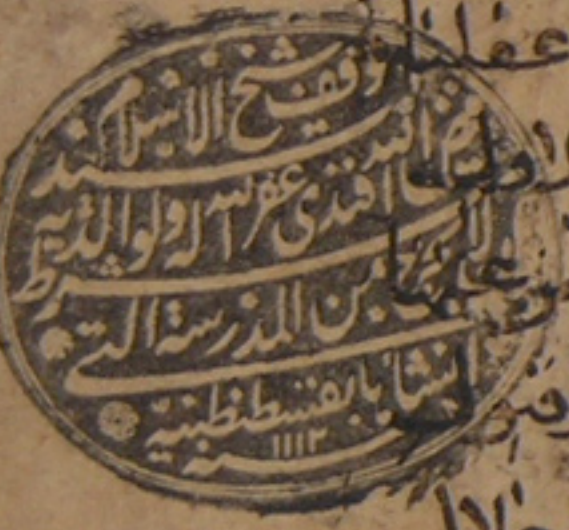 وقف شيخ الاسلام السيد
فيض الله افندى غفر الله له ولوالديه
بشرط ان لا يخرج من المدرسة التي
انشأها بقسطنطنيية
سنة ١١١٢